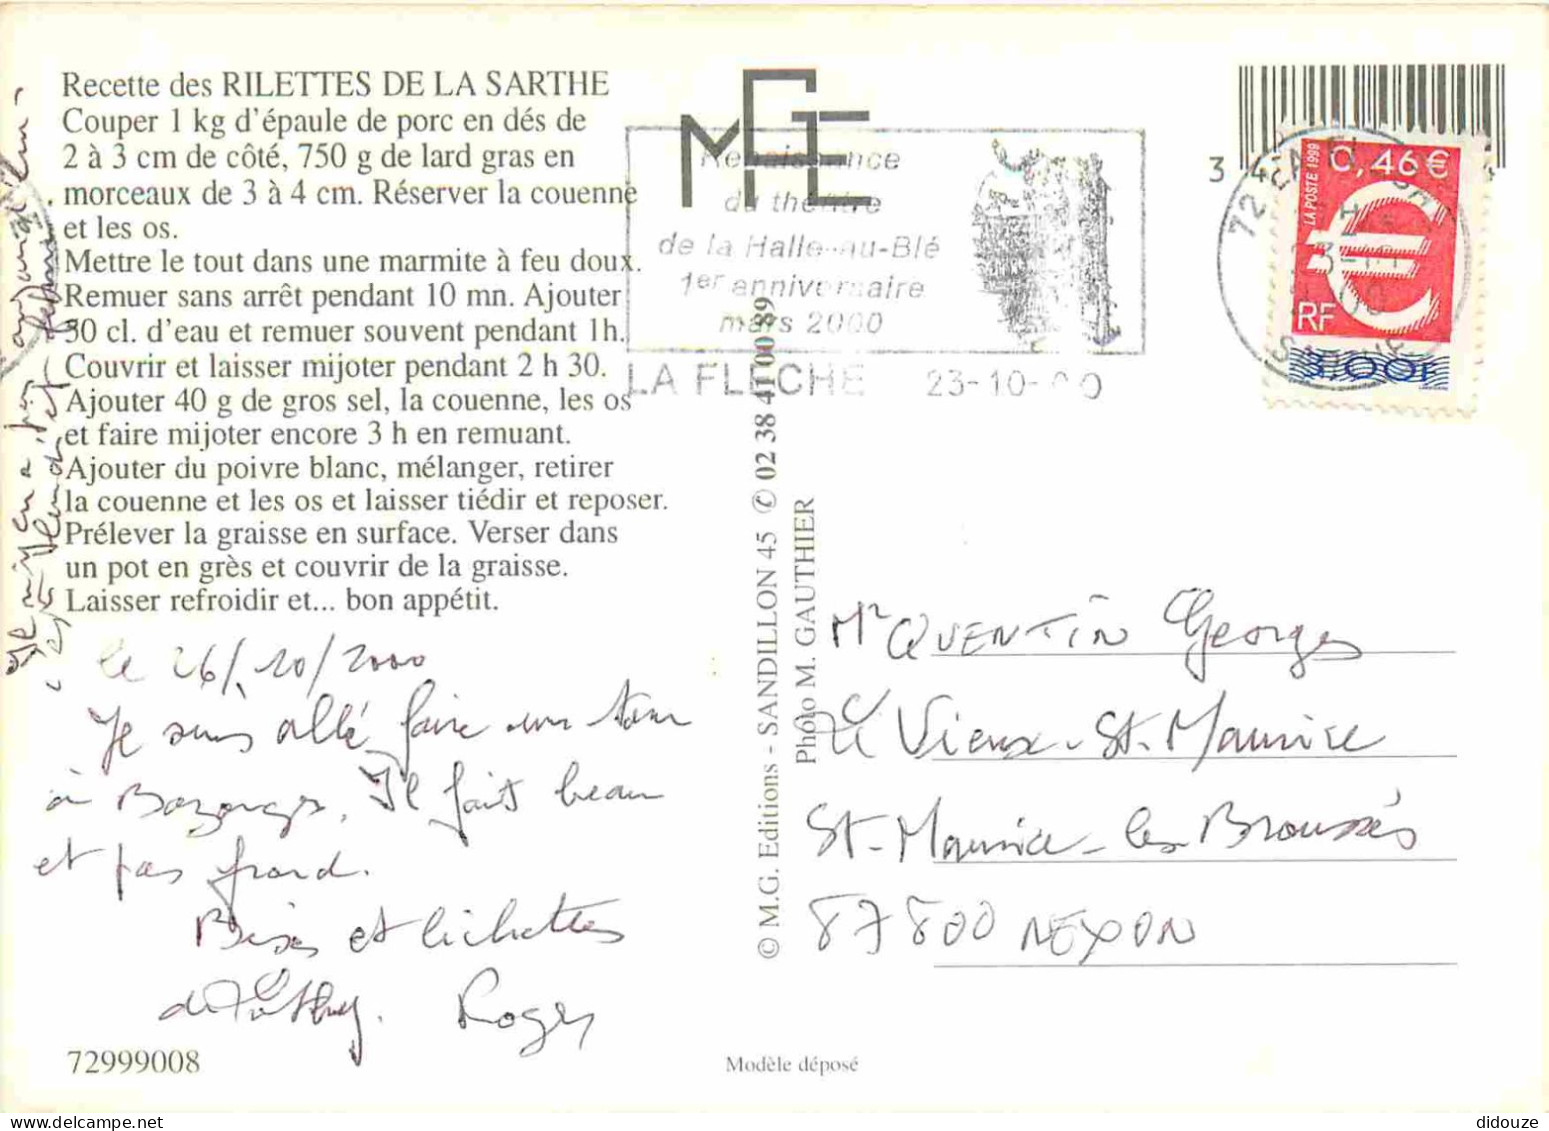 Recette des RILETTES DE LA SARTHE
Couper 1 kg d'épaule de porc en dés de
2 à 3 cm de côté, 750 g de lard gras en
morceaux de 3 à 4 cm. Réserver la couenne
et les os.
Mettre le tout dans une marmite à feu doux.
Remuer sans arrêt pendant 10 mn. Ajouter
30 cl. d'eau et remuer souvent pendant 1h.
Couvrir et laisser mijoter pendant 2 h 30.
Ajouter 40 g de gros sel, la couenne, les os
et faire mijoter encore 3 h en remuant.
Ajouter du poivre blanc, mélanger, retirer
la couenne et les os et laisser tiédir et reposer.
Prélever la graisse en surface. Verser dans
un pot en grès et couvrir de la graisse.
Laisser refroidir et... bon appétit.
le 26/10/2000
Je suis allé faire un tour
à Bazouges, Il fait beau
et pas froid.
Bises et lichettes
de
Roger
72999008
Modèle déposé
© M.G. Editions - SANDILLON 45 ✆ 02 38 41 00 89
Photo M. GAUTHIER
MGE
Renaissance
du théâtre
de la Halle-au-Blé
1er anniversaire
mars 2000
LA FLECHE 23-10-00
3 4
0,46 €
LA POSTE 1999
RF
3,00F
72
SARTHE
Mr QUENTIN Georges
Le Vieux-St-Maurice
St-Maurice-les Brousses
87800 NEXON